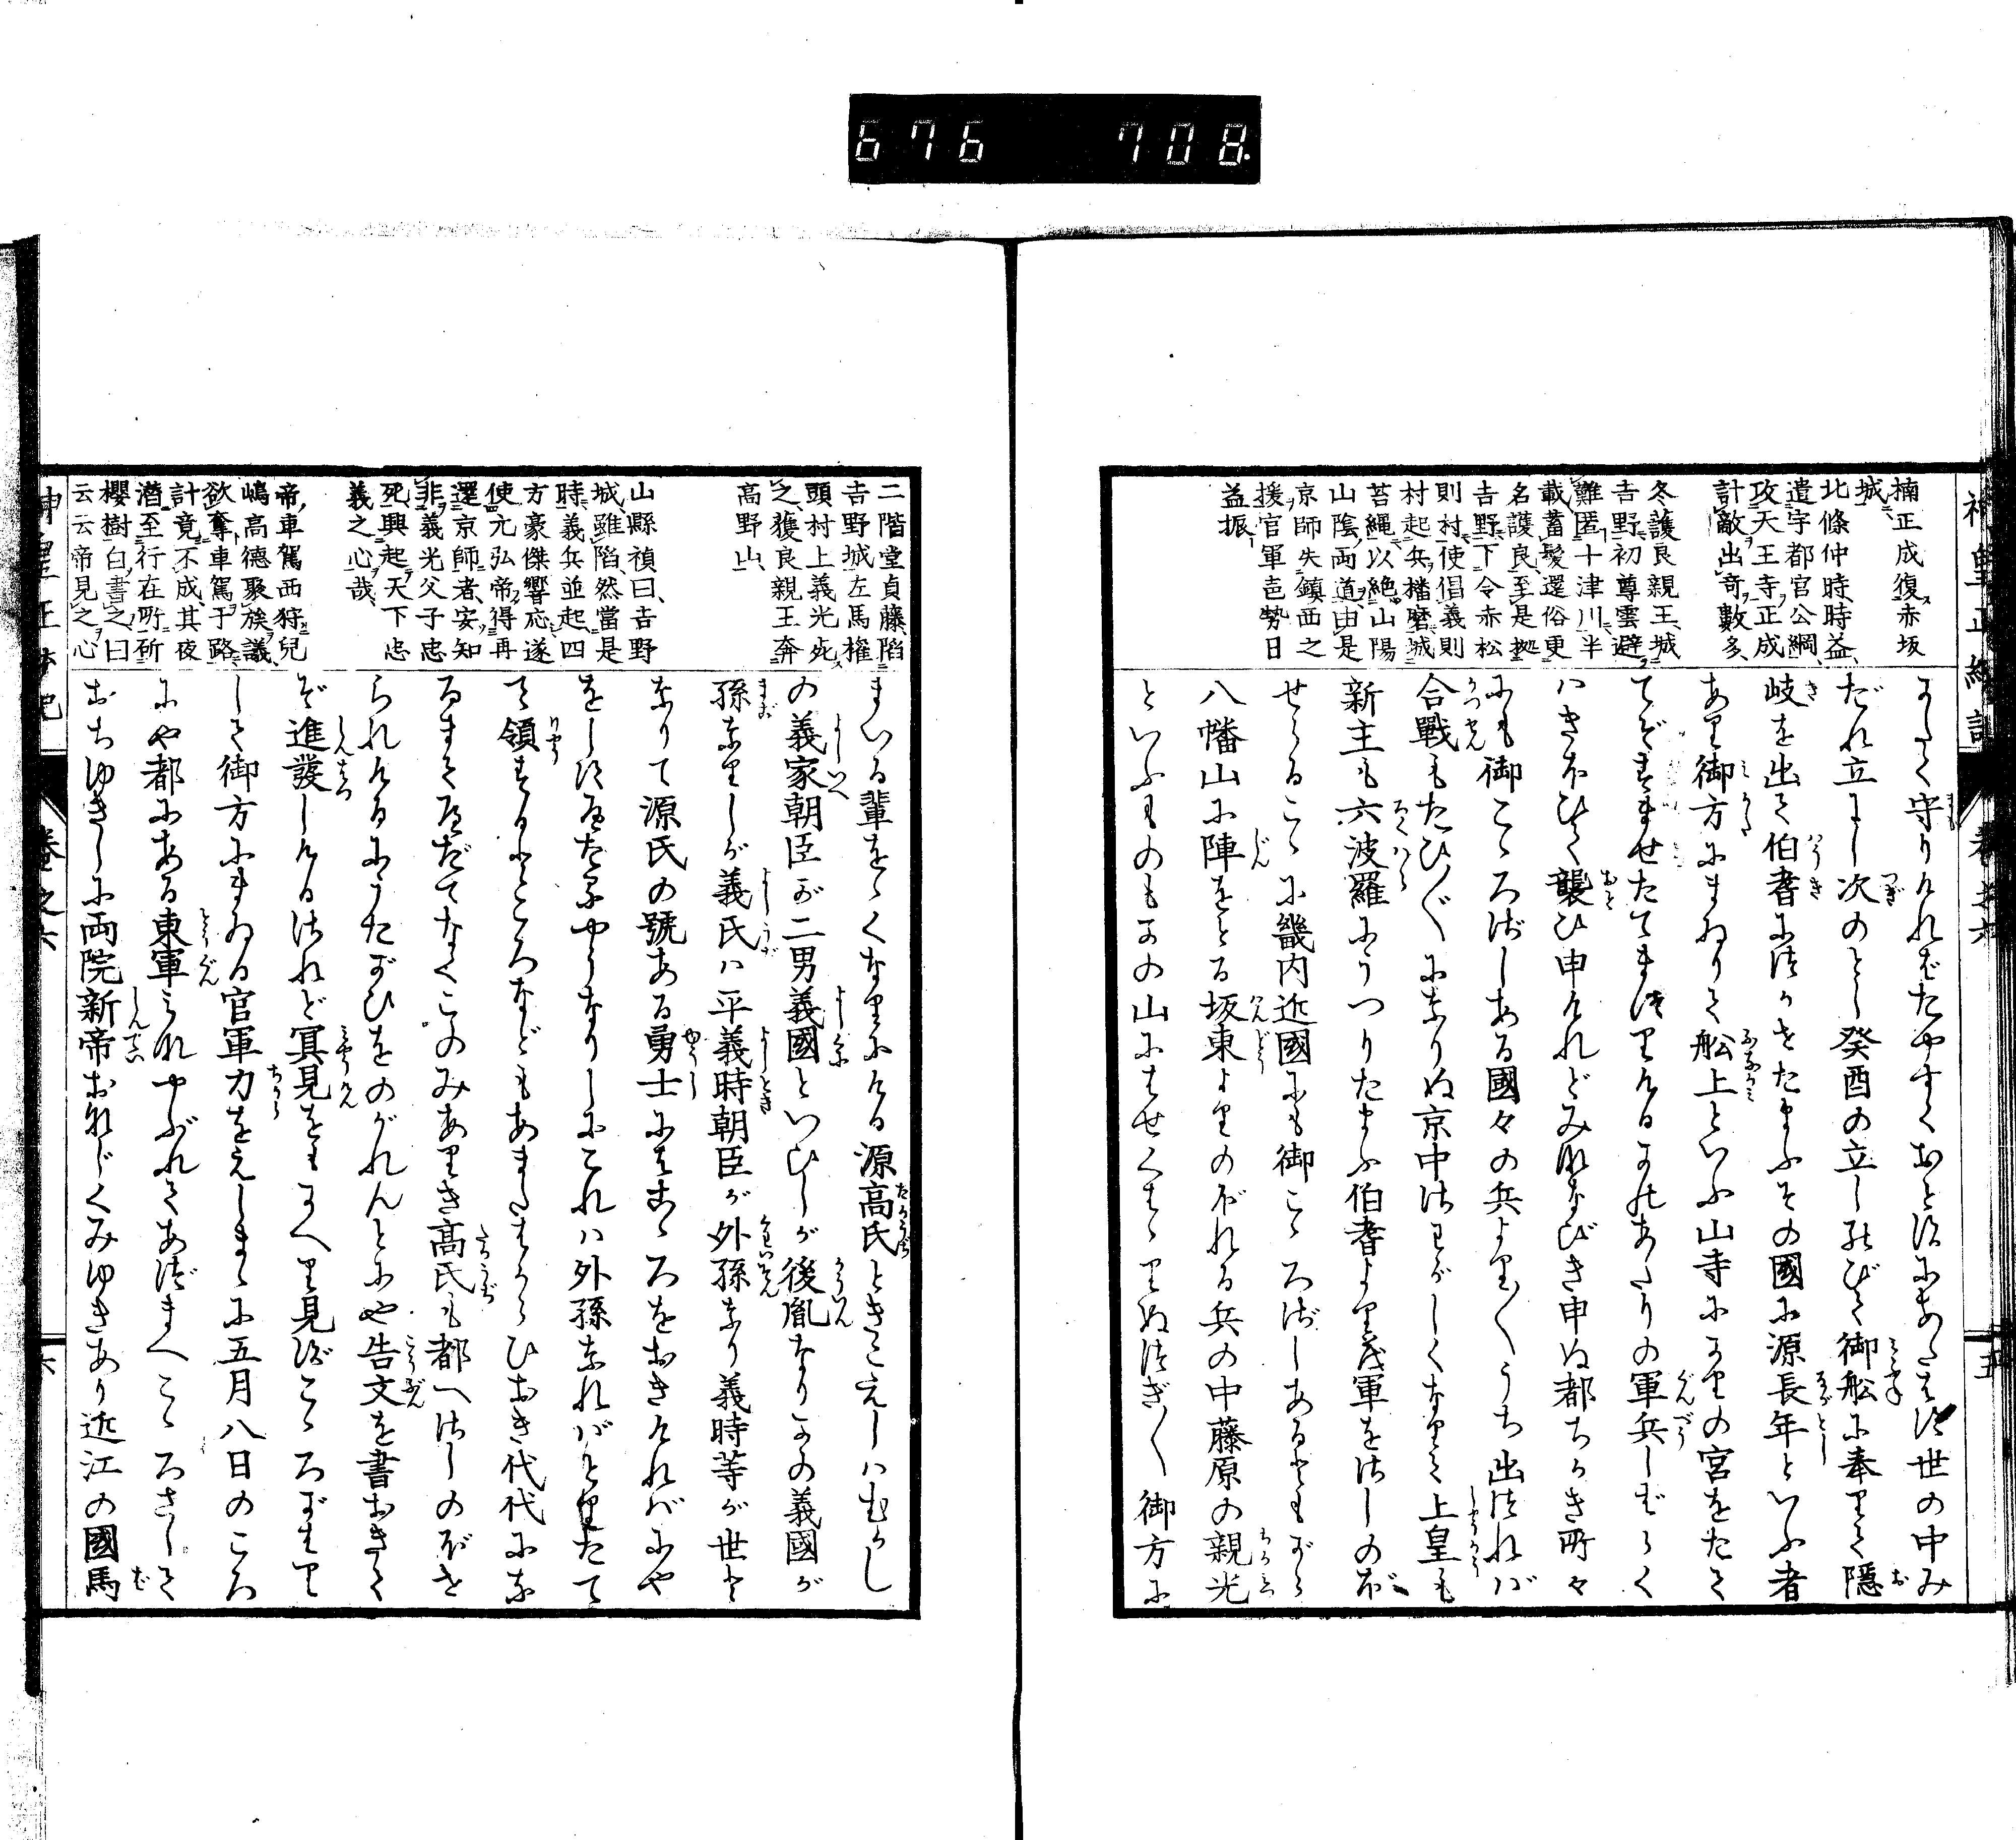 676 708.
楠正成復赤坂
城
北條仲時時益
遣宇都宮公綱
攻天王寺正成
計敵出奇數多
冬護良親王城
吉野初尊雲避
難匿十津川半
載蓄髪還俗更
名護良至是拠
吉野下令赤松
則村使倡義則
村起兵播磨城
苔縄以絶山陽
山陰両道由是
京師失鎮西之
援官軍邑勢日
益振
守りければたやすくおとすにあたはず世の中み
だれ立にし次のとし癸酉の立しのびて御舩に奉りて隠
岐を出て伯耆につかせたまふその國に源長年といふ者
あり御方にまゐりて舩上といふ山寺にかりの宮をたて
てぞすませたてまつりけるかのあたりの軍兵しばらく
はきほひて襲ひ申けれどみななびき申ぬ都ちかき所々
にも御こゝろざしある國々の兵より〱うち出ければ
合戰もたび〱になりぬ京中さわがしくなりて上皇も
新主も六波羅にうつりたまふ伯耆より軍をさしのぼ
せらるこゝに畿内近國にも御こゝろざしあるともがら
八幡山に陣をとる坂東よりのぼれる兵の中藤原の親光
といふものもかの山にはせくはゝりぬつぎ〱御方に
二階堂貞藤陷
吉野城左馬權
頭村上義光死
之獲良親王奔
高野山
山縣禎曰吉野
城雖陷然當是
時義兵並起四
方豪傑響応遂
使元弘帝得再
還京師者安知
非義光父子忠
死興起天下忠
義之心哉
帝車駕西狩兒
嶋高德聚族議
欲奪車駕于路
計竟不成其夜
潛至行在所斫
櫻樹白書之曰
云云帝見之心
まいる輩おゝくなりにける源高氏ときこえしはむかし
の義家朝臣が二男義國といひしが後胤なりかの義國が
孫なりしが義氏は平義時朝臣が外孫なり義時等が世と
なりて源氏の號ある勇士にはこゝろをおきければにや
をしすゑたるやうなりしにこれは外孫なればとりたて
て領するところなどもあまたはからひおき代代にな
るまでへだてなくこのみありき高氏も都へさしのぼせ
られけるにうたがひをのがれんとにや告文を書おきて
ぞ進發しけるされど冥見をもかへり見ずこゝろがはり
して御方にまゐる官軍力をえしまゝに五月八日のころ
にや都にある東軍みなやぶれてあづまへこゝろざして
おちゆきしに両院新帝おなじくみゆきあり近江の國馬